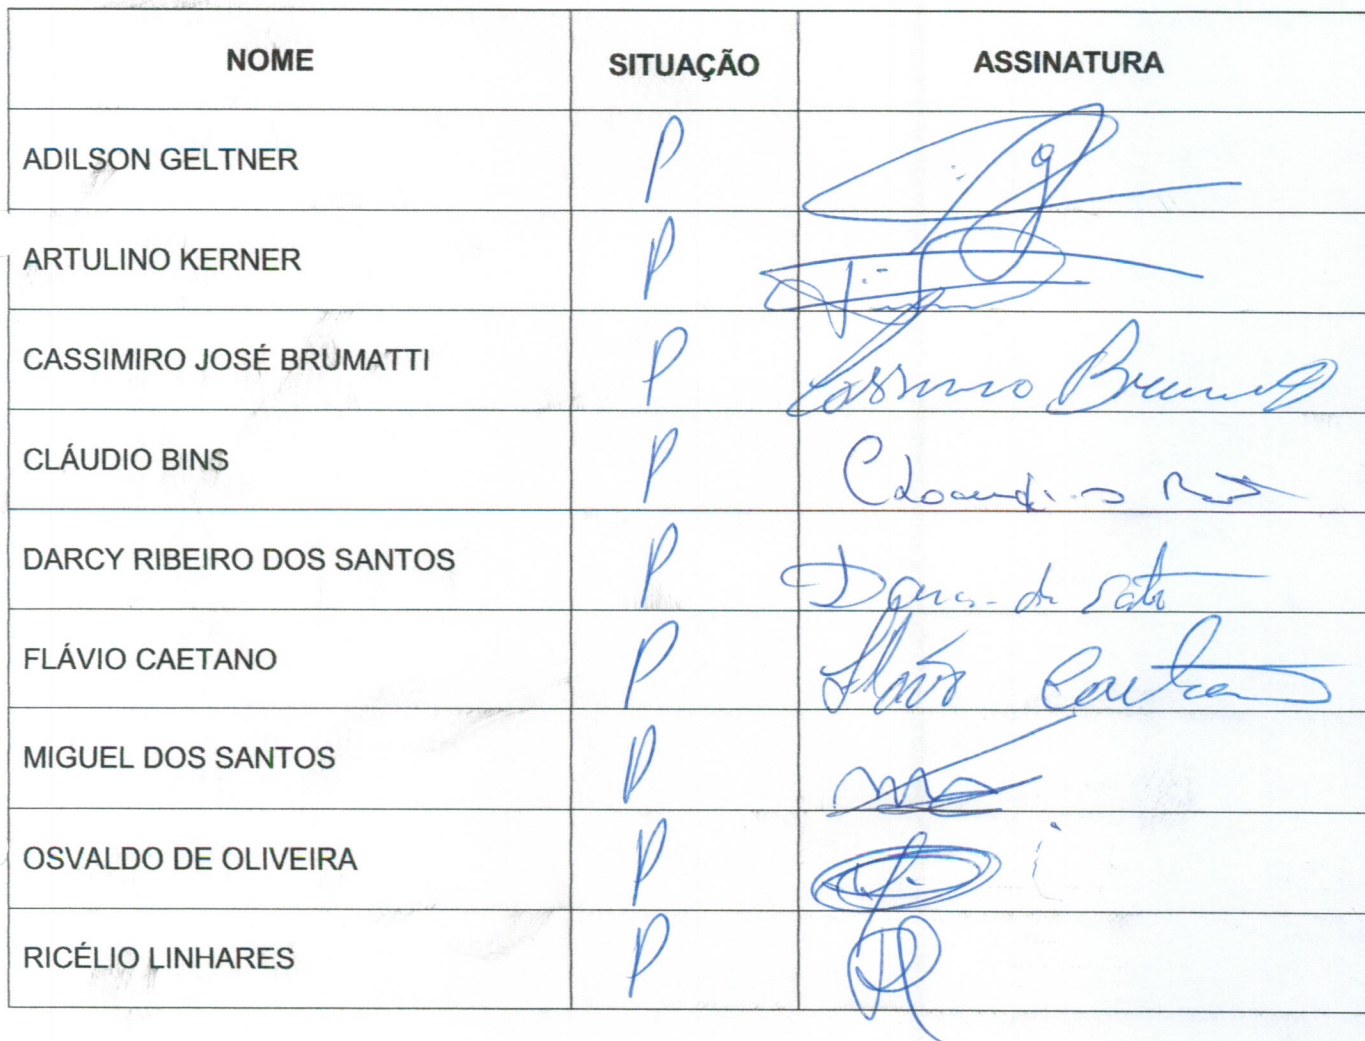 NOME SITUAÇÃO ASSINATURA
ADILSON GELTNER P
ARTULINO KERNER P
CASSIMIRO JOSÉ BRUMATTI P
CLÁUDIO BINS P
DARCY RIBEIRO DOS SANTOS P
FLÁVIO CAETANO P Flávio Caetano
MIGUEL DOS SANTOS P
OSVALDO DE OLIVEIRA P
RICÉLIO LINHARES P